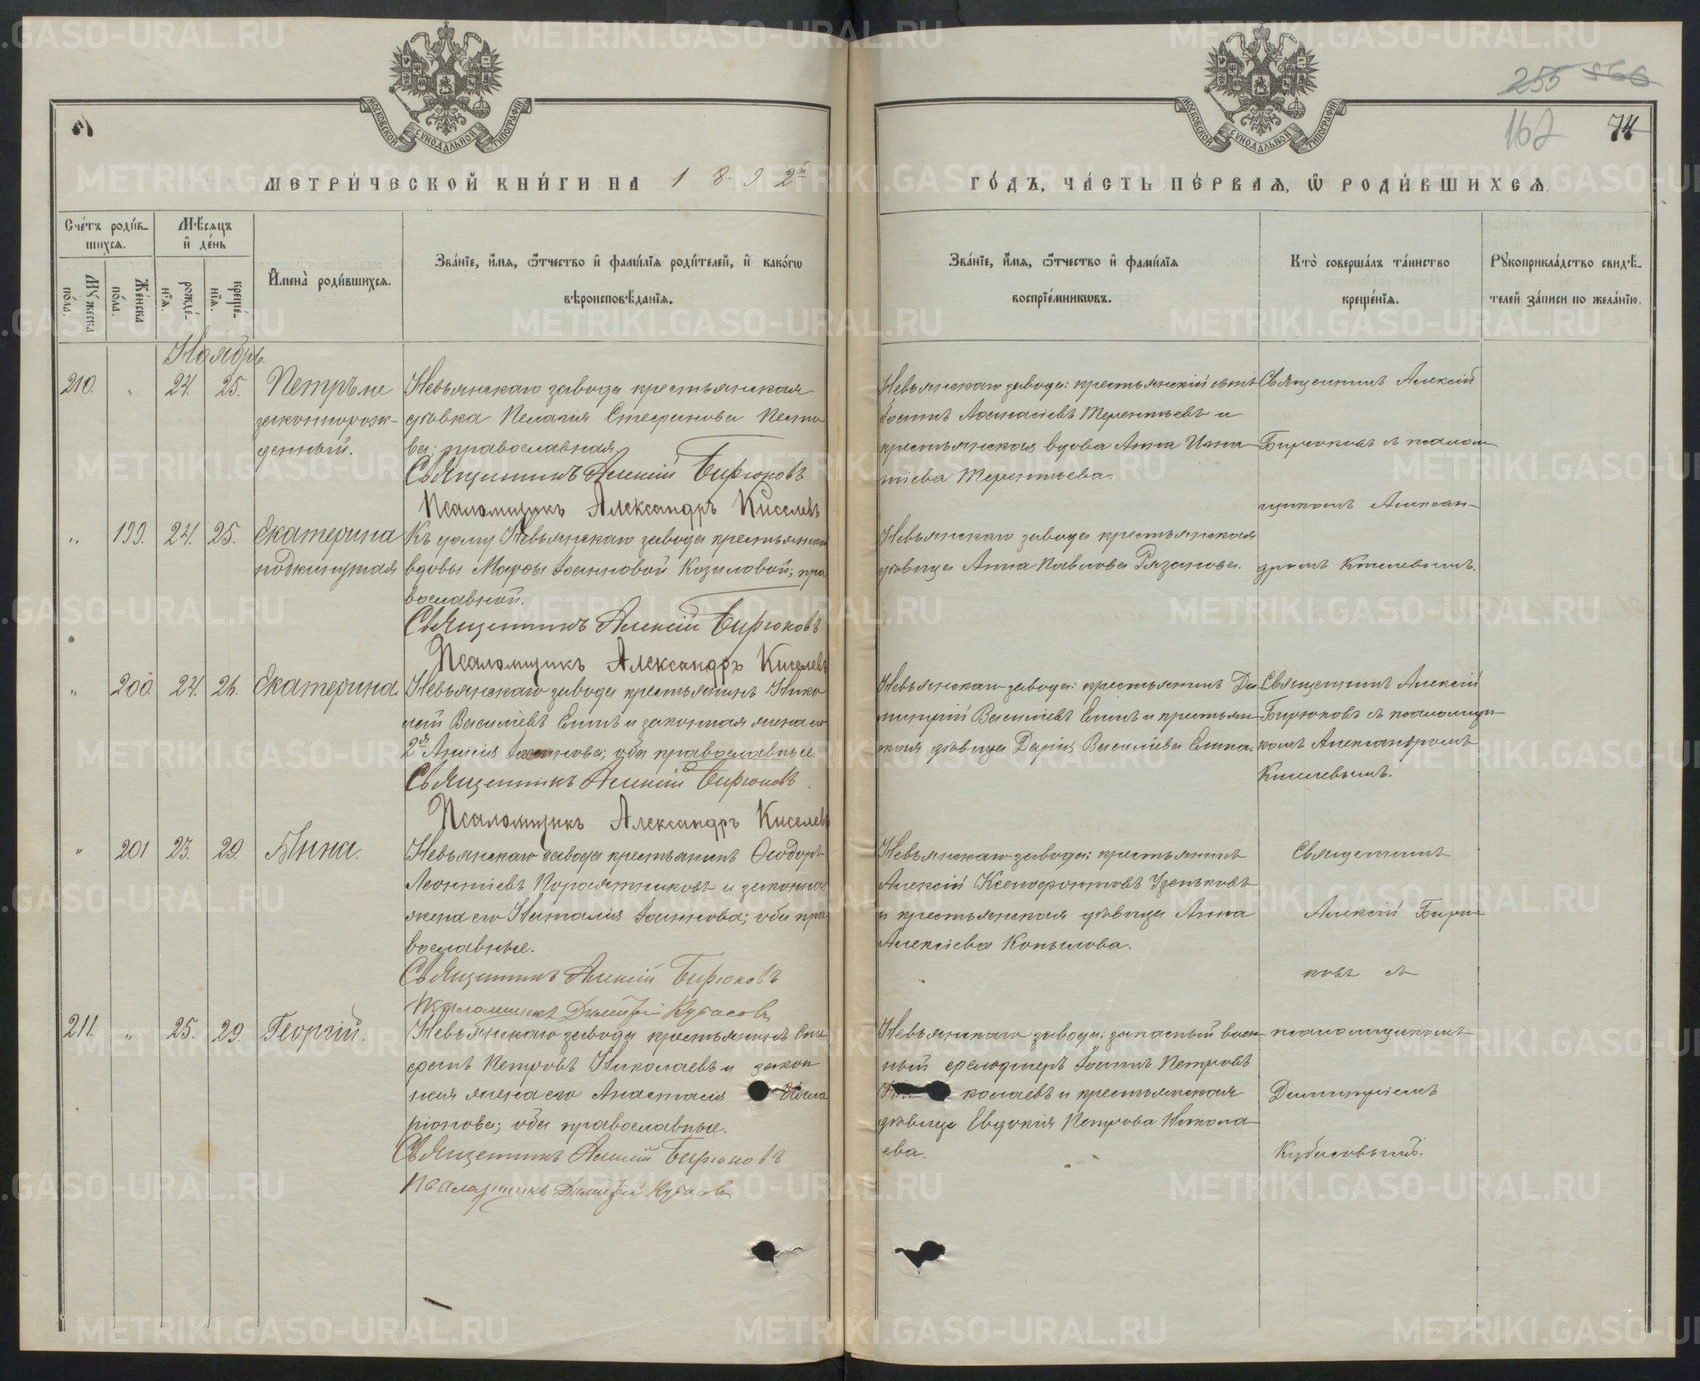 255 866
162 74
МЕТРИ́ЧЕСКОЙ КНИ́ГИ НА 1 8 9 2й
ГО́ДЪ, ЧА́СТЬ ПЕ́РВАЯ, Ѿ РОДИ́ВШИХСЯ.
Сче́тъ роди́в-
шихся.
Му́жеска по́ла.
Же́нска по́ла.
Мѣ́сяцъ
и҆ де́нь
рожде́-нїя.
креще́-нїя.
И҆мена̀ роди́вшихся.
Зва́нїе, и҆́мя, ѻ҆́тчество и҆ фами́лїя роди́телей, и҆ како́гѡ
вѣроисповѣ́данїя.
Зва́нїе, и҆́мя, ѻ҆́тчество и҆ фами́лїя
воспрїе́мникѡвъ.
Кто̀ соверша́лъ та́инство
креще́нїя.
Рꙋкоприкла́дство свидѣ́-
телей за́писи по жела́нїю.
Ноябрь
210. " 24. 25. Петръ не
законнорож-
денный.
Невьянскаго завода крестьянская
дѣвка Пелагія Стефанова
православная
Священникъ Алексій Бирюковъ
Псаломщикъ Александръ Киселевъ
Невьянскаго завода: крестьянскій сынъ
Аѳанасіевъ Терентьевъ и
крестьянская вдова Анна Игна
тіева Терентьева.
Священникъ Алексій
Бирюковъ съ псалом
щикомъ Алексан-
дромъ Киселевымъ.
" 199. 24. 25. Екатерина
подкинутая
Къ дому Невьянскаго завода крестьянской
вдовы Марѳы Іоанновой Козиловой; пра
вославной.
Священникъ Алексій Бирюковъ
Псаломщикъ Александръ Киселевъ
Невьянскаго завода крестьянская
дѣвица Анна Павлова Рязанова.
" 200 24. 26. Екатерина.
Невьянскаго завода крестьянинъ Нико
лай Василіевъ Елинъ и законная жена его
2й Іоаннова; оба православные
Священникъ Алексій Бирюковъ.
Псаломщикъ Александръ Киселевъ
Невьянскаго завода: крестьянинъ Ди
митрій Василіевъ Елинъ и крестьян
ская дѣвица Дарія Василіева Елина.
Священникъ Алексій
Бирюковъ съ псаломщи
комъ Александромъ
Киселевымъ.
" 201 23. 29. Анна.
Невьянскаго завода крестьянинъ Ѳеодоръ
Леонтіевъ Коромянниковъ и законная
жена его Наталія Іоаннова; оба пра
вославные.
Священникъ Алексій Бирюковъ
Псаломщикъ Димитрій Кубасовъ
Невьянскаго завода: крестьянинъ
Алексій Ксенофонтовъ Узеньковъ
и крестьянская дѣвица Анна
Алексіева Копылова.
Священникъ
Алексій Бирю
ковъ съ
псаломщикомъ
Димитріемъ
Кубасовымъ.
211. " 25. 29. Георгій.
Невьянскаго завода крестьянинъ
Петровъ Николаевъ и закон
ная жена его Анастасія
ріонова; оба православные.
Священникъ Алексій Бирюковъ
Псаломщикъ Димитрій Кубасовъ
Невьянскаго завода: запасный воен
ный фельдшеръ Іоаннъ Петровъ
колаевъ и крестьянская
дѣвица Евдокія Петрова Никола
ева.
METRIKI.GASO-URAL.RU